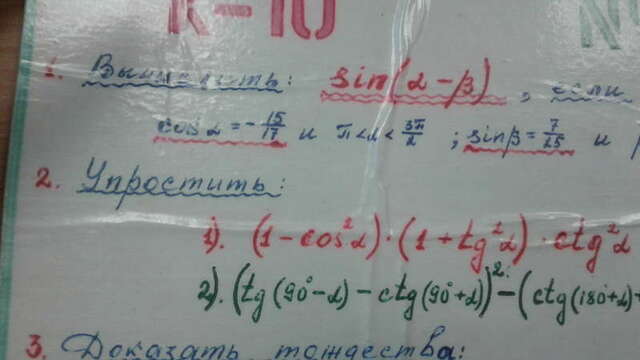 К-10
1. Вычислить: sin(α-β), если
cos α = -15/17 и π<α<3π/2; sinβ = 7/25 и
2. Упростить:
1). (1-cos²α)·(1+tg²α)·ctg²α
2). (tg(90°-α)-ctg(90°+α))²-(ctg(180°+α)+
3. Доказать тождества: